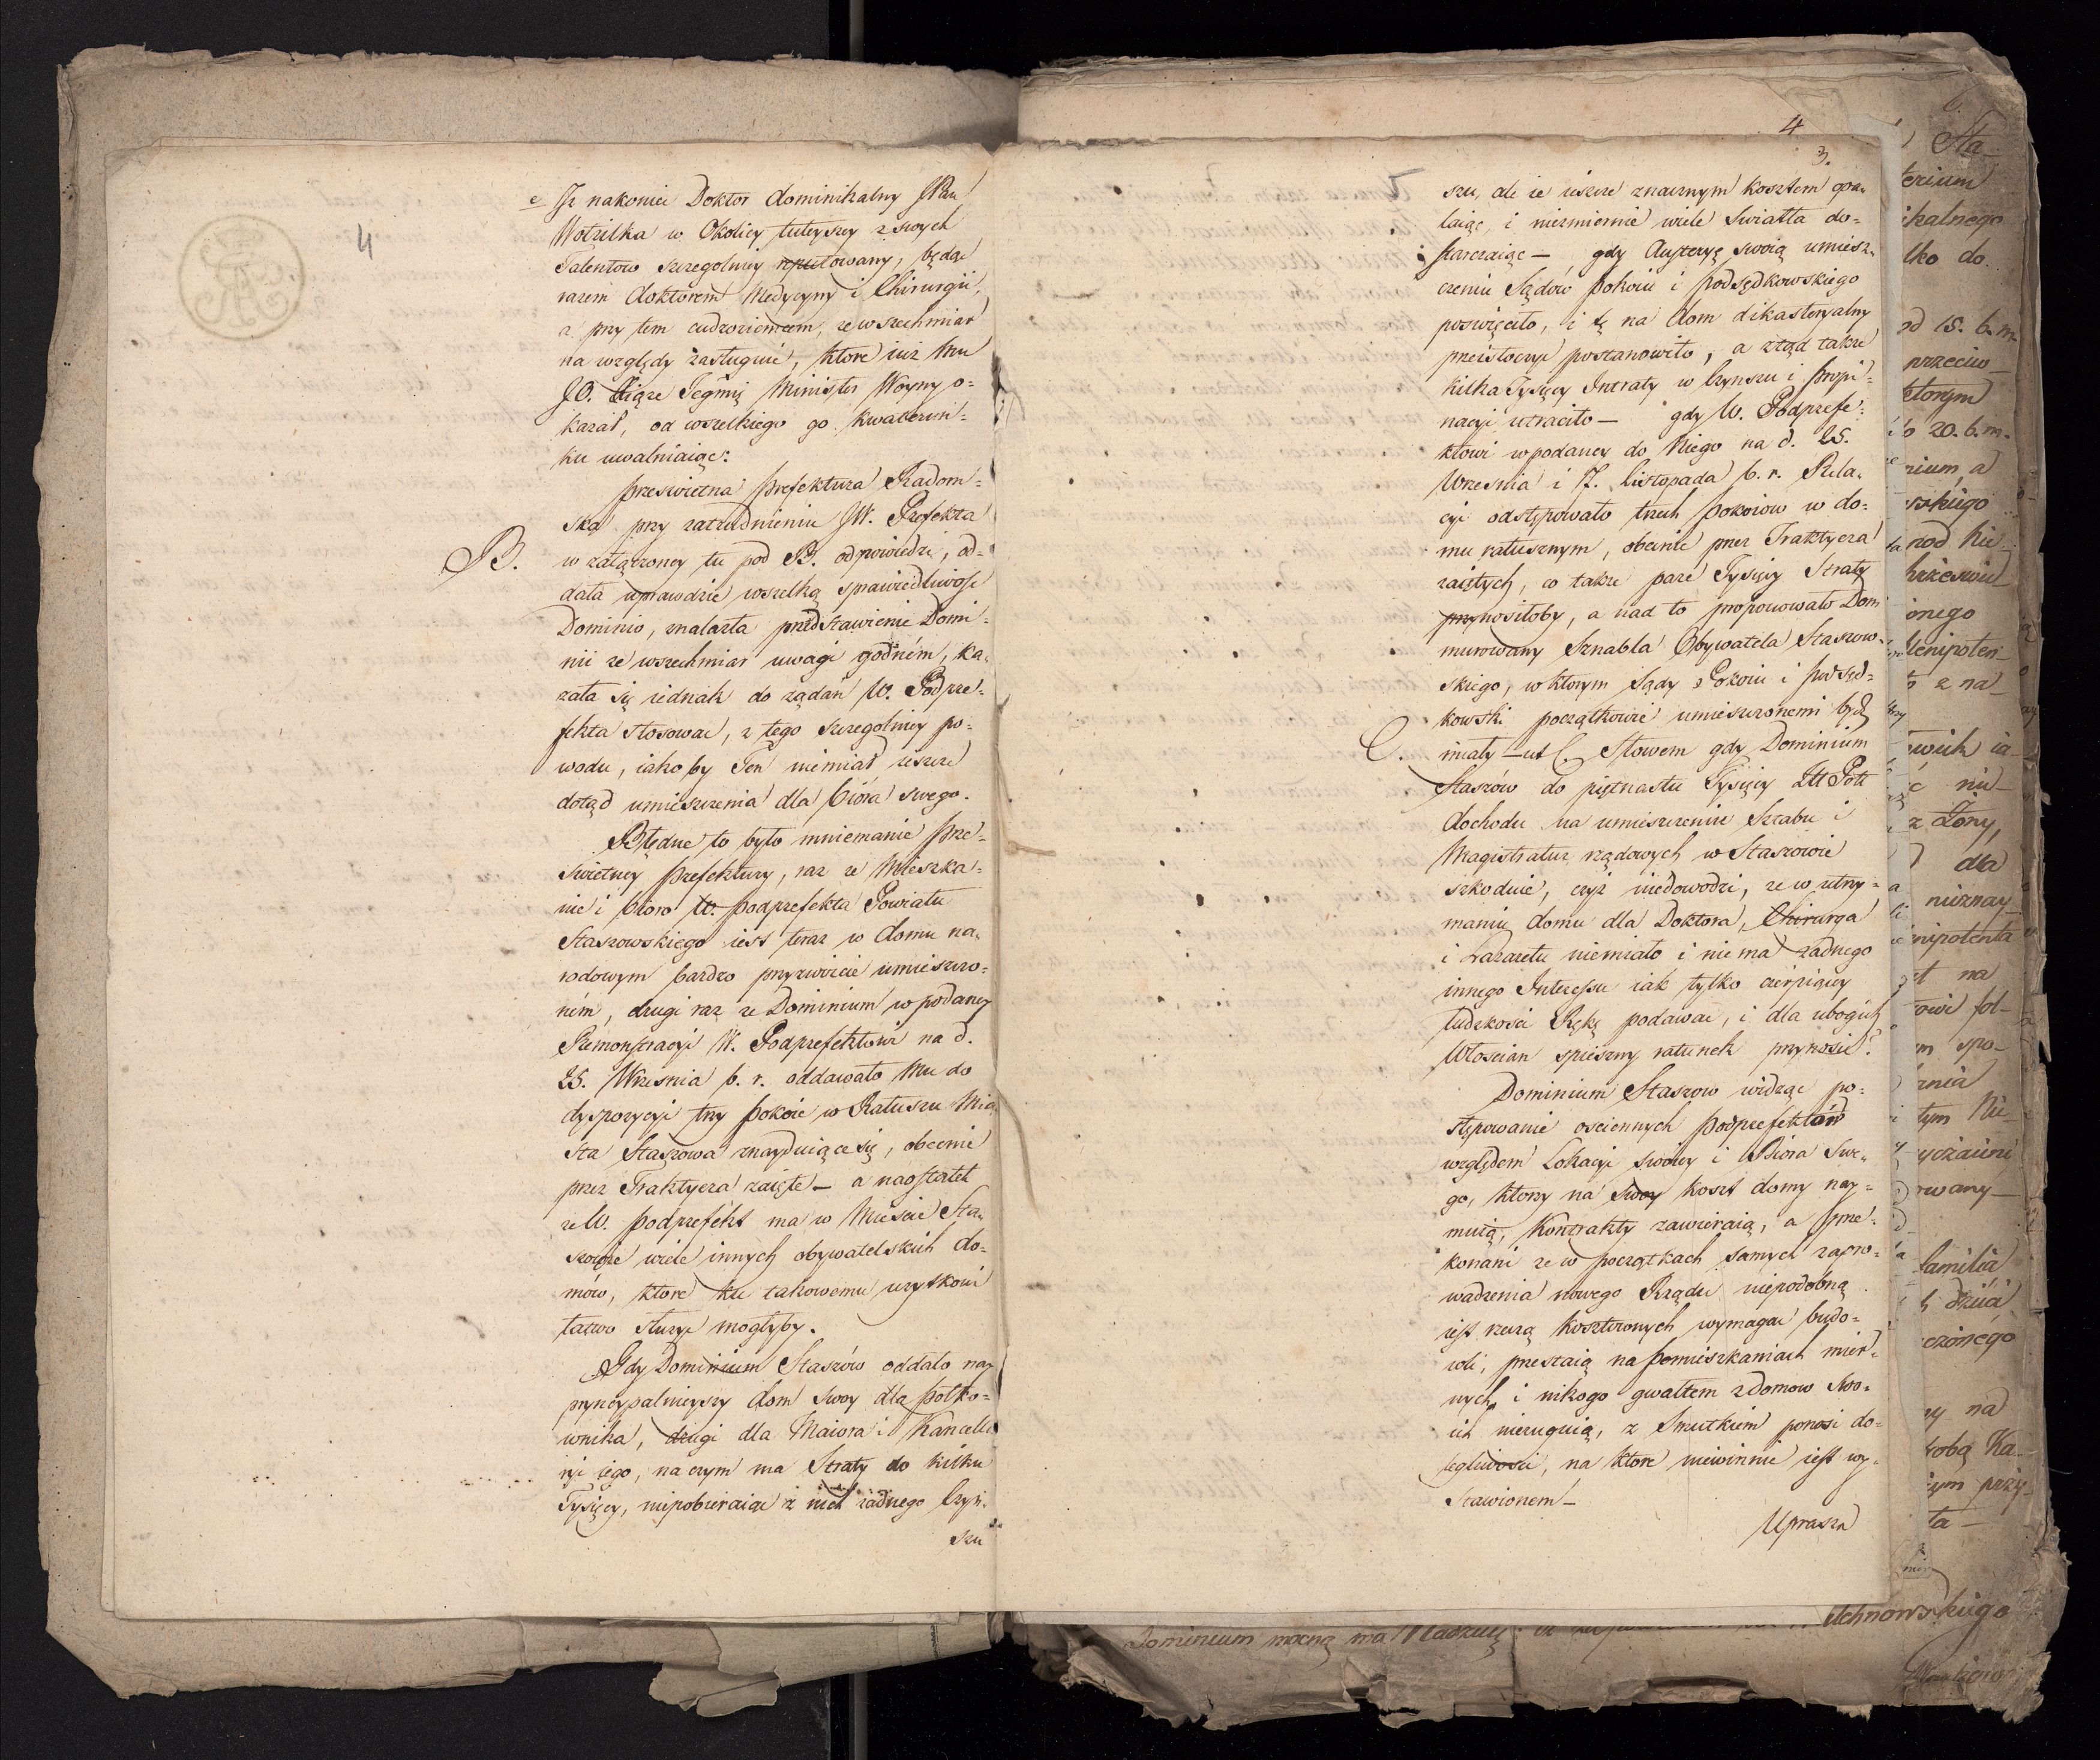 4
e Iż nakoniec Doktor dominikalny JPan
Wotzilka w Okolicy tuteyszey z swych
Talentow szczegolniey reputowany, będąc
razem doktorem Medycyny i Chirurgii,
a przy tem cudzoziemcem, ze wszechmiar
na względy zasługuie, ktore iuż Mu
JO. Xiąże Jegmść Minister Woyny o-
kazał, od wszelkiego go kwaterun-
ku uwalniaiąc.
Prześwietna Prefektura Radom-
ska przy zatrudnieniu JW. Prefekta
B. w załączoney tu pod B. odpowiedzi, od-
dała wprawdzie wszelką sprawiedliwość
Dominio, znalazła przedstawienie Domi-
nii ze wszechmiar uwagi godném, ka-
zała się iednak do żądań W. Podpre-
fekta stosować, z tego szczegolniey po-
wodu, iakoby Ten niemiał ieszcze
dotąd umieszczenia dla bióra swego.
Błędne to było mniemanie Prze-
świetney Prefektury, raz ze Mieszka-
nie i bioro W. Podprefekta Powiatu
Staszowskiego iest teraz w domu na-
rodowym bardzo przyzwoicie umieszczo-
ném, drugi raz ze Dominium w podaney
Remonstracyi W. Podprefektowi na d.
25. Wrzesnia b. r. oddawało Mu do
dyspozycyi trzy pokoie w Ratuszu Mia-
sta Staszowa znayduiące się, obecnie
przez Traktyera zaięte — a naostatek
że W. Podprefekt ma w Mieście Sta-
szowie wiele innych obywatelskich do-
mów, ktore ku takowemu użytkowi
łatwo służyć mogłyby.
Gdy Dominium Staszów oddało nay-
pryncypalnieyszy dom swoy dla Połko-
wnika, drugi dla Maiora i Kancella-
ryi iego, na czym ma Straty do kilku
Tysięcy, niepobieraiąc z nich żadnego Czyn-
szu
4
3.
5
szu, ale ie ieszcze znacznym kosztem opa-
laiąc, i niezmiernie wiele światła do-
starczaiąc — , gdy Austeryę swoią umiesz-
czeniu Sądów Pokoiu i Podsędkowskiego
poswięciło, i tę na dom dikasteryalny
przeistoczyć postanowiło, a ztąd także
kilka Tysięcy Intraty w Czynszu i Propi-
nacyi utraciło — gdy W. Podprefe-
ktowi w podaney do Niego na d. 25.
Wrzesnia i 7. Listopada b. r. Rela-
cyi odstępowało trzech pokoiow w do-
mu ratusznym, obecnie przez Traktyera
zaiętych, co także parę Tysięcy Straty
przynosiłoby, a nad to proponowało Dom
murowany Sznabla Obywatela Staszow-
skiego, w ktorym Sądy Pokoiu i Podsęd-
kowski początkowie umieszczonemi być
C. miały — ut C. Słowem gdy Dominium
Staszów do piętnastu Tysięcy Zł Pol:
dochodu na umieszczeniu Sztabu i
Magistratur rządowych w Staszowie
szkoduie, czyż niedowodzi, ze w utrzy-
maniu domu dla Doktora, Chirurga
i Lazaretu niemiało i nie ma żadnego
innego Interessu iak tylko cierpiącey
ludzkości Rękę podawać, i dla ubogich
Włościan spieszny ratunek przynosić?
Dominium Staszow widząc po-
stępowanie osciennych Podprefektów
względem Lokacyi swoiey i Bióra Swe-
go, ktorzy na swoy koszt domy nay-
muią, Kontrakty zawieraią, a prze-
konani ze w początkach samych zapro-
wadzenia nowego Rządu niepodobną
iest rzeczą kosztownych wymagać budo-
wli, przestaią na pomieszkaniach mier-
nych, i nikogo gwałtem z domow Swo-
ich nieruguią, z Smutkiem ponosi do-
legliwosci, na ktore niewinnie iest wy-
stawionem —
Uprasza